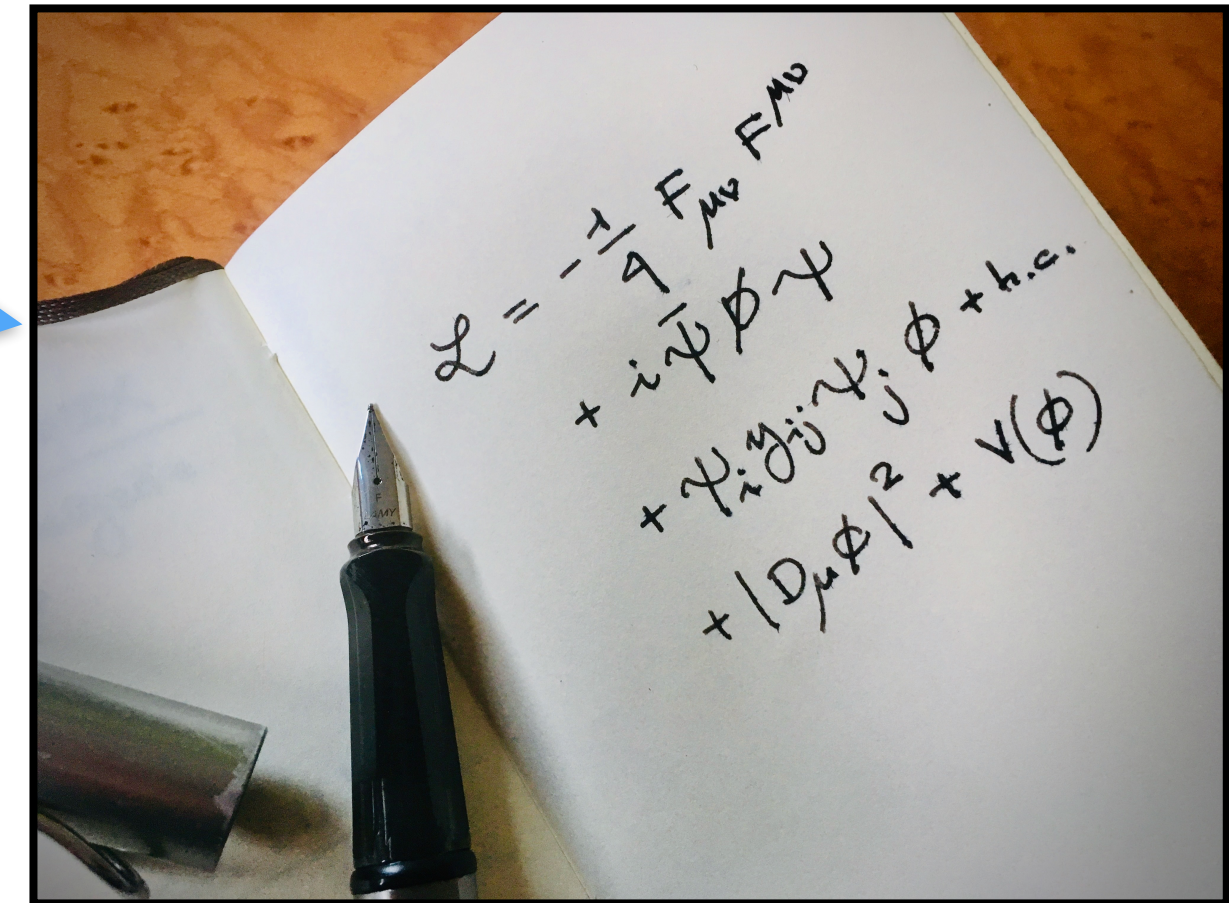 ℒ = -1/4 F_μν F^μν
+ i ψ̄ D̸ ψ
+ ψ_i y_ij ψ_j φ + h.c.
+ |D_μ φ|² + V(φ)
F